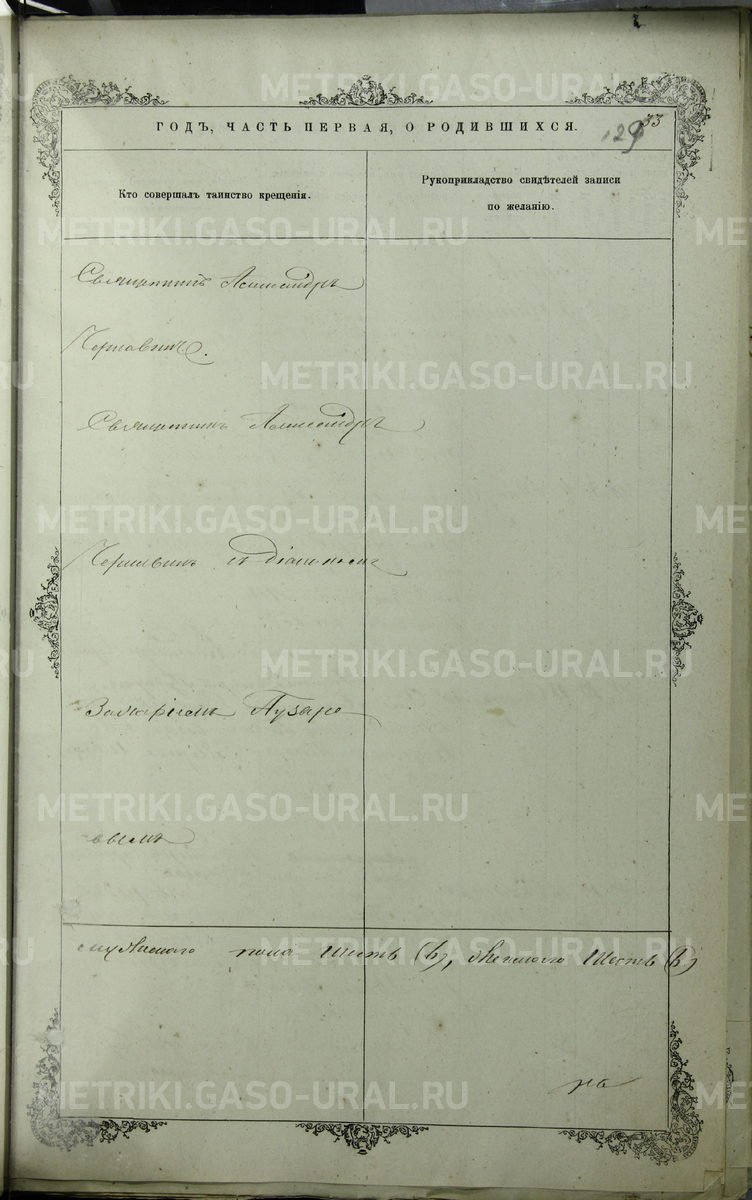 ГОДЪ, ЧАСТЬ ПЕРВАЯ, О РОДИВШИХСЯ.
129 33
Кто совершалъ таинство крещенія.
Рукоприкладство свидѣтелей записи
по желанію.
Священникъ Александръ
Священникъ Александръ
и діакономъ
Захаріемъ Пузыре
вымъ
мужескаго пола шесть (6), женскаго шесть (6)
METRIKI.GASO-URAL.RU